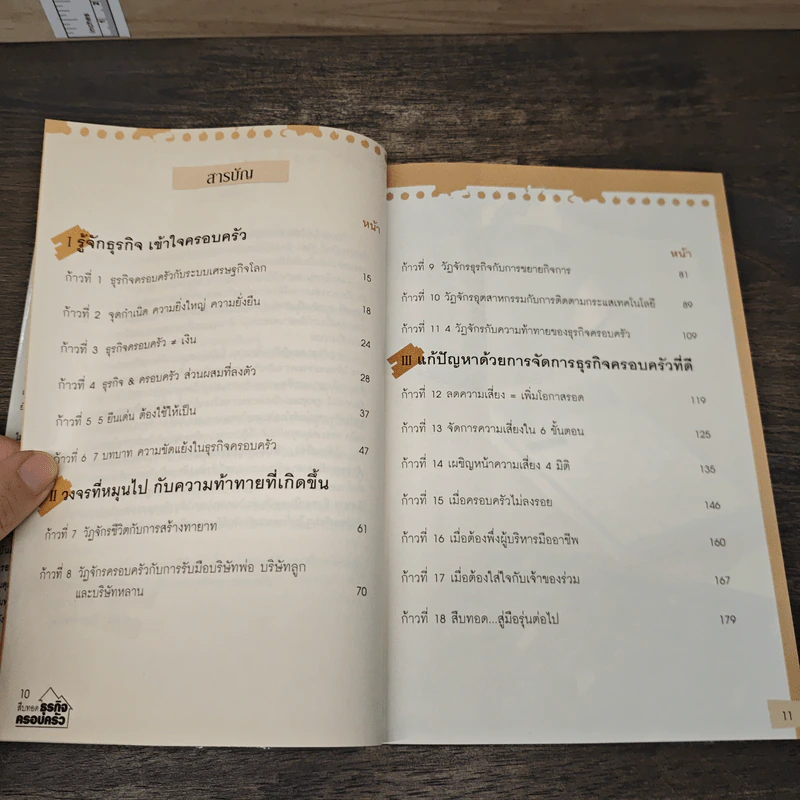 สารบัญ
หน้า
I รู้จักธุรกิจ เข้าใจครอบครัว
ก้าวที่ 1 ธุรกิจครอบครัวกับระบบเศรษฐกิจโลก 15
ก้าวที่ 2 จุดกำเนิด ความยิ่งใหญ่ ความยั่งยืน 18
ก้าวที่ 3 ธุรกิจครอบครัว ≠ เงิน 24
ก้าวที่ 4 ธุรกิจ & ครอบครัว ส่วนผสมที่ลงตัว 28
ก้าวที่ 5 5 ยืนเด่น ต้องใช้ให้เป็น 37
ก้าวที่ 6 7 บทบาท ความขัดแย้งในธุรกิจครอบครัว 47
II วงจรที่หมุนไป กับความท้าทายที่เกิดขึ้น
ก้าวที่ 7 วัฏจักรชีวิตกับการสร้างทายาท 61
ก้าวที่ 8 วัฏจักรครอบครัวกับการรับมือบริษัทพ่อ บริษัทลูก
และบริษัทหลาน 70
10
สืบทอด ธุรกิจ
ครอบครัว
หน้า
ก้าวที่ 9 วัฏจักรธุรกิจกับการขยายกิจการ 81
ก้าวที่ 10 วัฏจักรอุตสาหกรรมกับการติดตามกระแสเทคโนโลยี 89
ก้าวที่ 11 4 วัฏจักรกับความท้าทายของธุรกิจครอบครัว 109
III แก้ปัญหาด้วยการจัดการธุรกิจครอบครัวที่ดี
ก้าวที่ 12 ลดความเสี่ยง = เพิ่มโอกาสรอด 119
ก้าวที่ 13 จัดการความเสี่ยงใน 6 ขั้นตอน 125
ก้าวที่ 14 เผชิญหน้าความเสี่ยง 4 มิติ 135
ก้าวที่ 15 เมื่อครอบครัวไม่ลงรอย 146
ก้าวที่ 16 เมื่อต้องพึ่งผู้บริหารมืออาชีพ 160
ก้าวที่ 17 เมื่อต้องใส่ใจกับเจ้าของร่วม 167
ก้าวที่ 18 สืบทอด...สู่มือรุ่นต่อไป 179
11